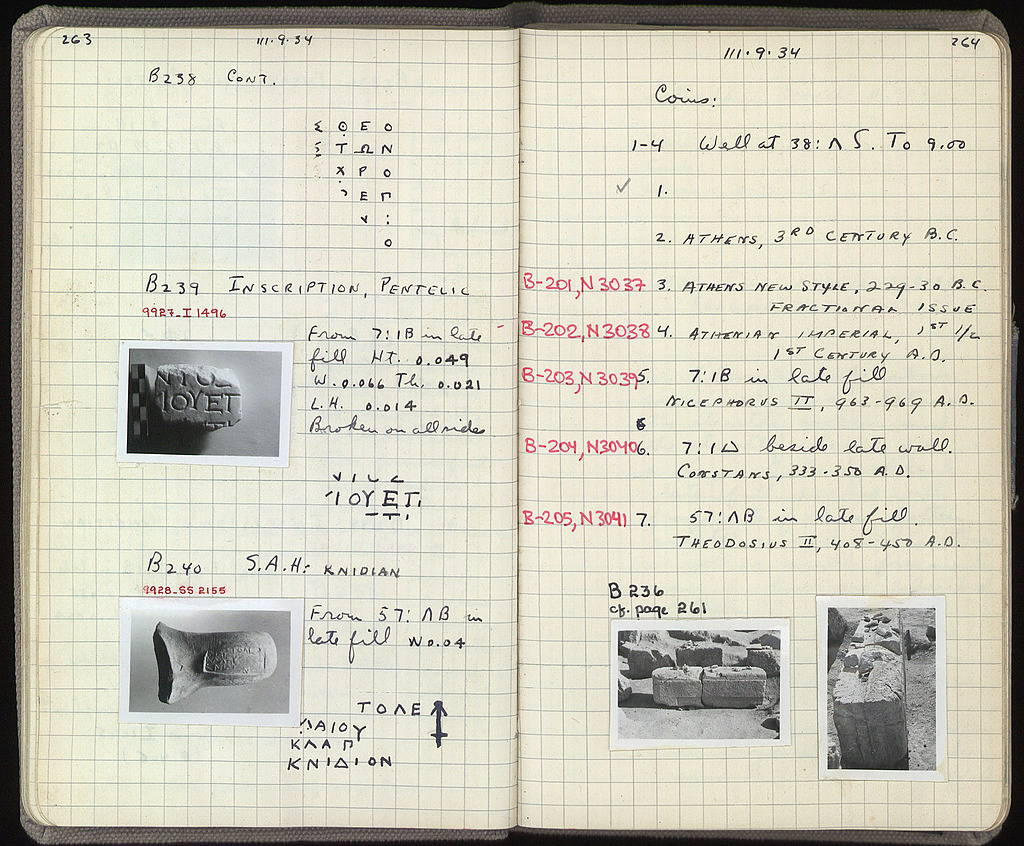 263
111·9·34
B238 CONT.
Σ Θ Ε Ο
Σ Τ Ω Ν
Χ Ρ Ο
Ε Π
Ο
B239 INSCRIPTION, PENTELIC
9927_I 1496
From 7:IB in late
fill Ht. 0.049
W. 0.066 Th. 0.021
L.H. 0.014
Broken on all sides
ΙΟΥΕΤ
ΙΟΥΕΤ
B240 S.A.H: KNIDIAN
9928_SS 2155
From 57:ΛB in
late fill W 0.04
ΤΟΛΕ
ΑΙΟΥ
ΚΛΑΠ
ΚΝΙΔΙΟΝ
111·9·34
264
Coins:
1-4 Well at 38:Λ S. To 9.00
✓ 1.
2. ATHENS, 3RD CENTURY B.C.
B-201, N3037 3. ATHENS NEW STYLE, 229-30 B.C.
FRACTIONAL ISSUE
B-202, N3038 4. ATHENIAN IMPERIAL, 1ST 1/2
1ST CENTURY A.D.
B-203, N3039 5. 7:IB in late fill
NICEPHORUS II, 963-969 A.D.
6
B-204, N3040 6. 7:IΔ beside late wall.
CONSTANS, 333-350 A.D.
B-205, N3041 7. 57:ΛB in late fill.
THEODOSIUS II, 408-450 A.D.
B 236
cf. page 261